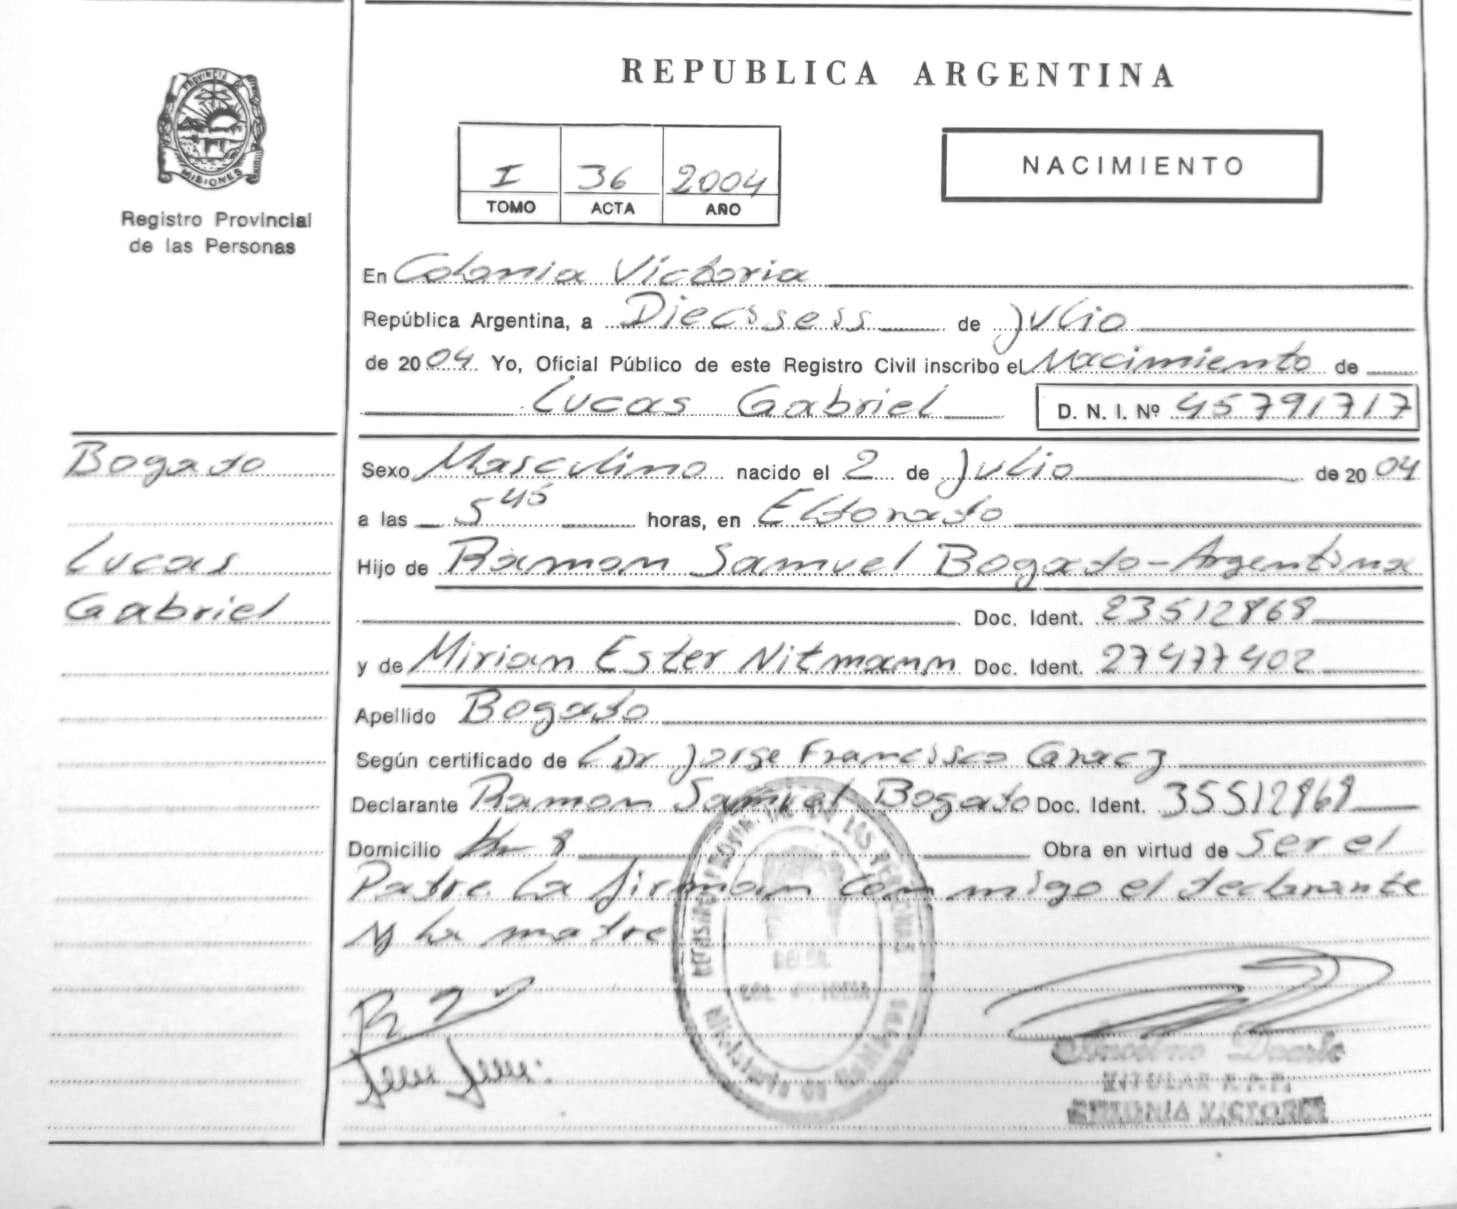 REPUBLICA ARGENTINA
PROVINCIA DE
MISIONES
Registro Provincial
de las Personas
I 36 2004
TOMO ACTA AÑO
NACIMIENTO
En Colonia Victoria
República Argentina, a Diecisseis de Julio
de 2004 Yo, Oficial Público de este Registro Civil inscribo el Nacimiento de
Lucas Gabriel D. N. I. Nº 45791717
Bogado
Lucas
Gabriel
Sexo Masculino nacido el 2 de Julio de 2004
a las 5 45 horas, en Eldorado
Hijo de Ramon Samuel Bogado - Argentina
Doc. Ident. 23512868
y de Miriam Ester Nitmann Doc. Ident. 27477402
Apellido Bogado
Según certificado de Dr Jorge Francissco
Declarante Ramon Samuel Bogado Doc. Ident. 35512868
Domicilio Km 8 Obra en virtud de Ser el
Padre La firman conmigo el declarante
y la madre
TITULAR R.P.P.
COLONIA VICTORIA